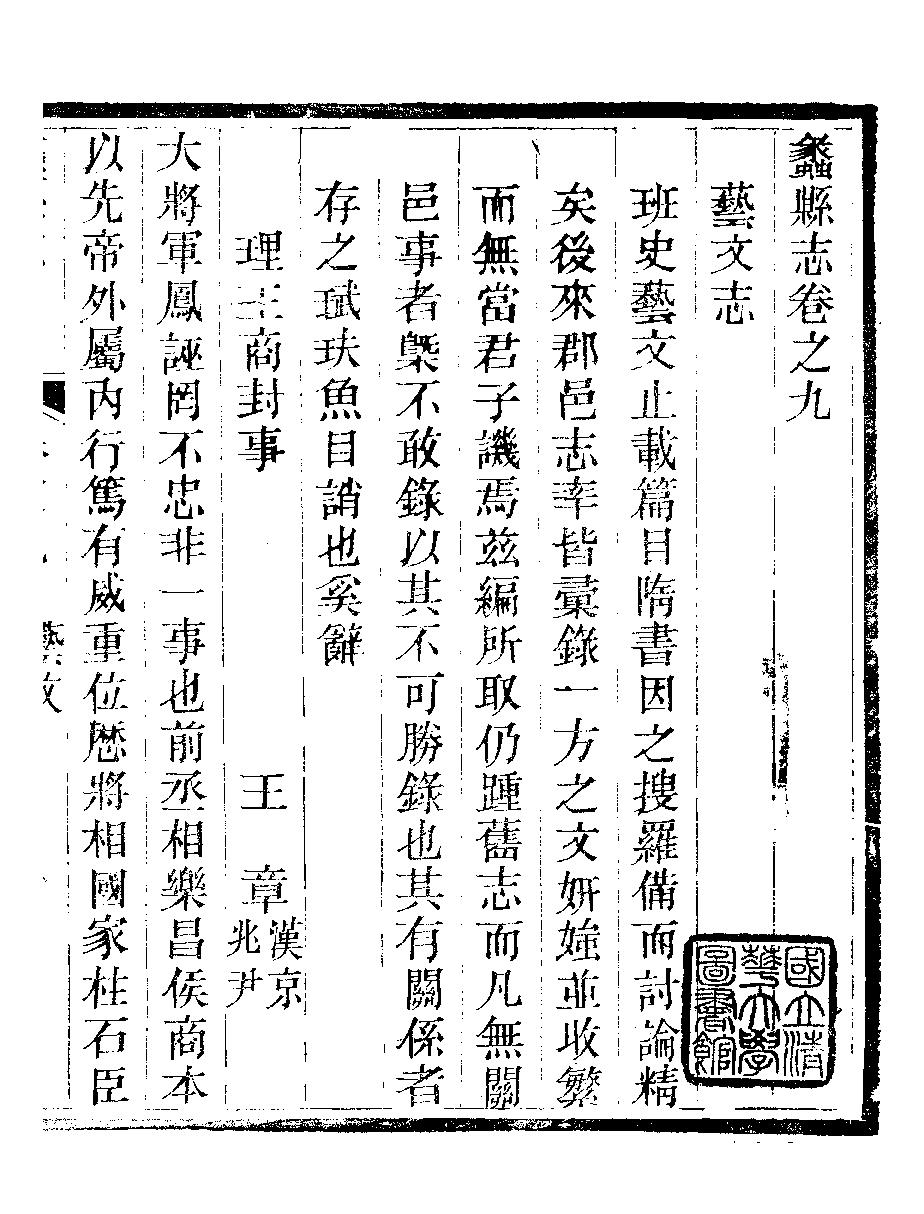 蠡縣志卷之九
藝文志
班史藝文止載篇目隋書因之搜羅備而討論精
矣後來郡邑志率皆彙錄一方之文妍媸並收繁
而無當君子譏焉茲編所取仍踵舊志而凡無關
邑事者槩不敢錄以其不可勝錄也其有關係者
存之珷玞魚目誚也奚辭
理王商封事 王章 漢京兆尹
大將軍鳳誣罔不忠非一事也前丞相樂昌侯商本
以先帝外屬內行篤有威重位歷將相國家柱石臣
藝文
國立清華大學圖書館